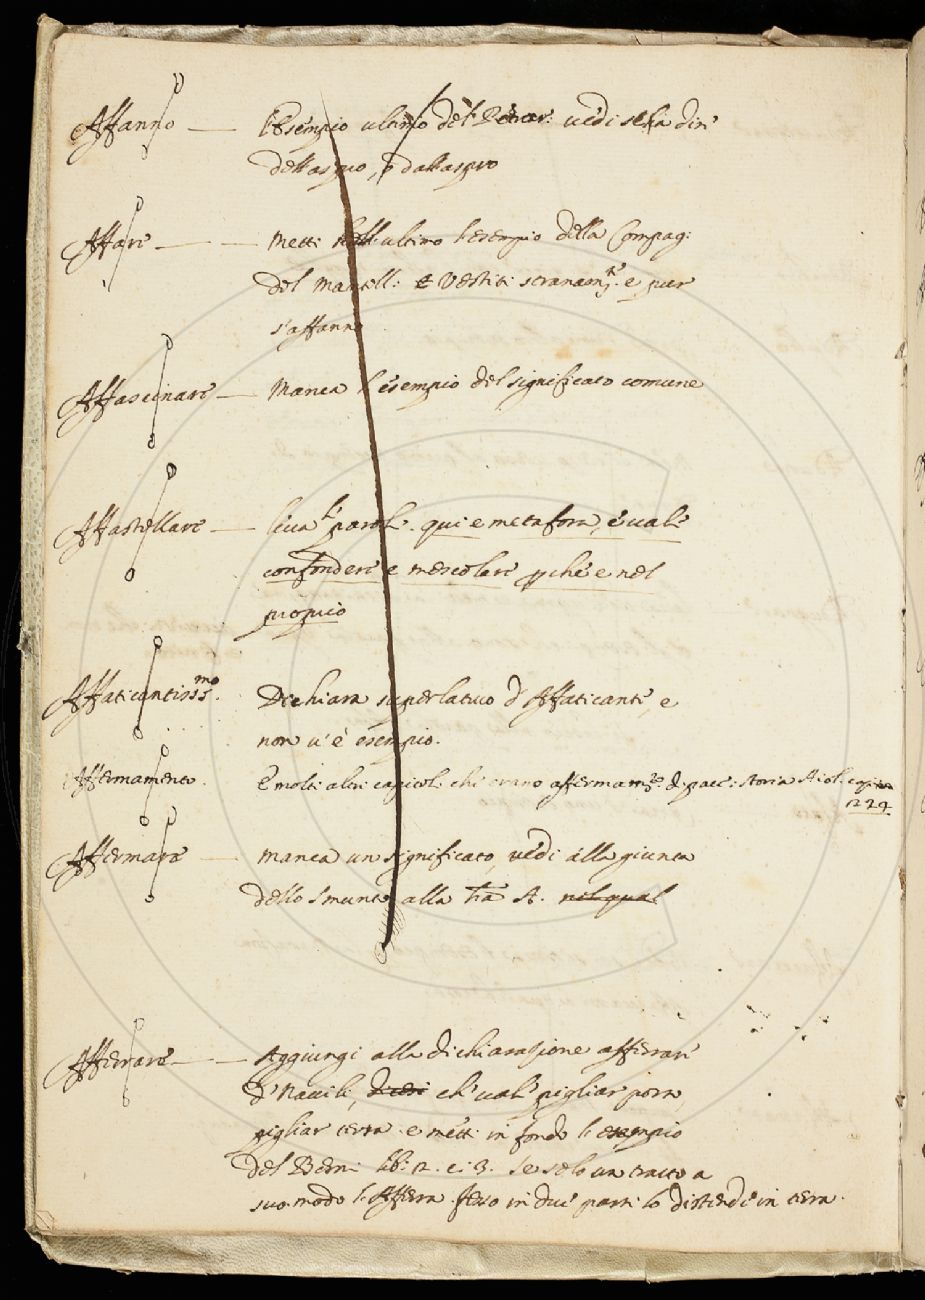 Affanno — l'Esempio ultimo del Petrar. vedi se ha dir
dell'aspro, o dall'aspro
Affare — Metti nell'ultimo l'esempio della Compag:
del Mantell: E Vestiti stranam.te e par
s'affanno
Affascinare — Manca l'esempio del significato comune
Affastellare — leva l' parole. qui e metafora, e vale
confondere e mescolare pche e nel
proprio
Affaticantiss.mo Dichiara superlativo d'Affaticante, e
non v'è esempio.
Affermamento. E molti altri capitoli che erano affermam.to di pace: Storia Aiol.
1224
Affermare — manca un significato, vedi alla giunta
dello Smunto alla tra A. nel qual
Afferrare — Aggiungi alla dichiarazione afferrare
d'Navili, che vale pigliar porto,
pigliar terra e metti in fondo l'esempio
del Berni lib: 2. c: 3. Se solo un tratto a
suo modo l'Afferra fesso in due parti lo distende in terra.